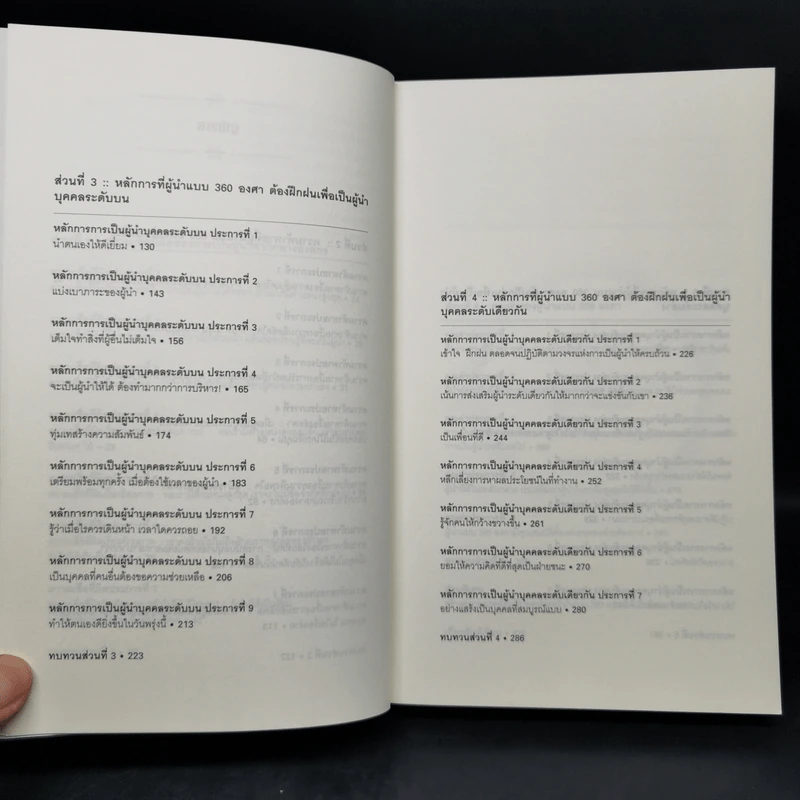 ส่วนที่ 3 :: หลักการที่ผู้นำแบบ 360 องศา ต้องฝึกฝนเพื่อเป็นผู้นำ
บุคคลระดับบน
หลักการการเป็นผู้นำบุคคลระดับบน ประการที่ 1
นำตนเองให้ดีเยี่ยม • 130
หลักการการเป็นผู้นำบุคคลระดับบน ประการที่ 2
แบ่งเบาภาระของผู้นำ • 143
หลักการการเป็นผู้นำบุคคลระดับบน ประการที่ 3
เต็มใจทำสิ่งที่ผู้อื่นไม่เต็มใจ • 156
หลักการการเป็นผู้นำบุคคลระดับบน ประการที่ 4
จะเป็นผู้นำให้ได้ ต้องทำมากกว่าการบริหาร! • 165
หลักการการเป็นผู้นำบุคคลระดับบน ประการที่ 5
ทุ่มเทสร้างความสัมพันธ์ • 174
หลักการการเป็นผู้นำบุคคลระดับบน ประการที่ 6
เตรียมพร้อมทุกครั้ง เมื่อต้องใช้เวลาของผู้นำ • 183
หลักการการเป็นผู้นำบุคคลระดับบน ประการที่ 7
รู้ว่าเมื่อไรควรเดินหน้า เวลาใดควรถอย • 192
หลักการการเป็นผู้นำบุคคลระดับบน ประการที่ 8
เป็นบุคคลที่คนอื่นต้องขอความช่วยเหลือ • 206
หลักการการเป็นผู้นำบุคคลระดับบน ประการที่ 9
ทำให้ตนเองดียิ่งขึ้นในวันพรุ่งนี้ • 213
ทบทวนส่วนที่ 3 • 223
ส่วนที่ 4 :: หลักการที่ผู้นำแบบ 360 องศา ต้องฝึกฝนเพื่อเป็นผู้นำ
บุคคลระดับเดียวกัน
หลักการการเป็นผู้นำบุคคลระดับเดียวกัน ประการที่ 1
เข้าใจ ฝึกฝน ตลอดจนปฏิบัติตามวงจรแห่งการเป็นผู้นำให้ครบถ้วน • 226
หลักการการเป็นผู้นำบุคคลระดับเดียวกัน ประการที่ 2
เน้นการส่งเสริมผู้นำระดับเดียวกันให้มากกว่าจะแข่งขันกับเขา • 236
หลักการการเป็นผู้นำบุคคลระดับเดียวกัน ประการที่ 3
เป็นเพื่อนที่ดี • 244
หลักการการเป็นผู้นำบุคคลระดับเดียวกัน ประการที่ 4
หลีกเลี่ยงการหาผลประโยชน์ในที่ทำงาน • 252
หลักการการเป็นผู้นำบุคคลระดับเดียวกัน ประการที่ 5
รู้จักคนให้กว้างขวางขึ้น • 261
หลักการการเป็นผู้นำบุคคลระดับเดียวกัน ประการที่ 6
ยอมให้ความคิดที่ดีที่สุดเป็นฝ่ายชนะ • 270
หลักการการเป็นผู้นำบุคคลระดับเดียวกัน ประการที่ 7
อย่าแสร้งเป็นบุคคลที่สมบูรณ์แบบ • 280
ทบทวนส่วนที่ 4 • 286